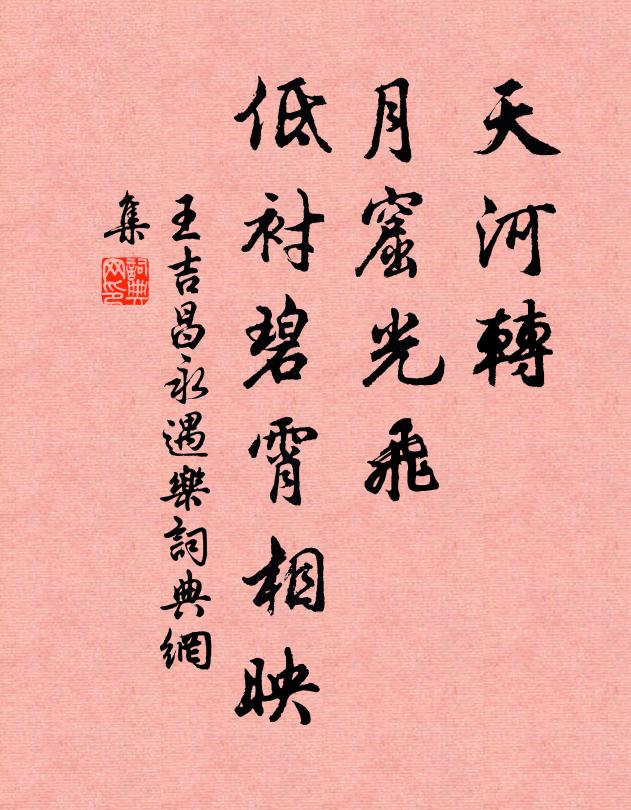 天河轉
月窟光飛
低衬碧霄相映
王吉昌永遇樂詞典網
集
詞典
网印